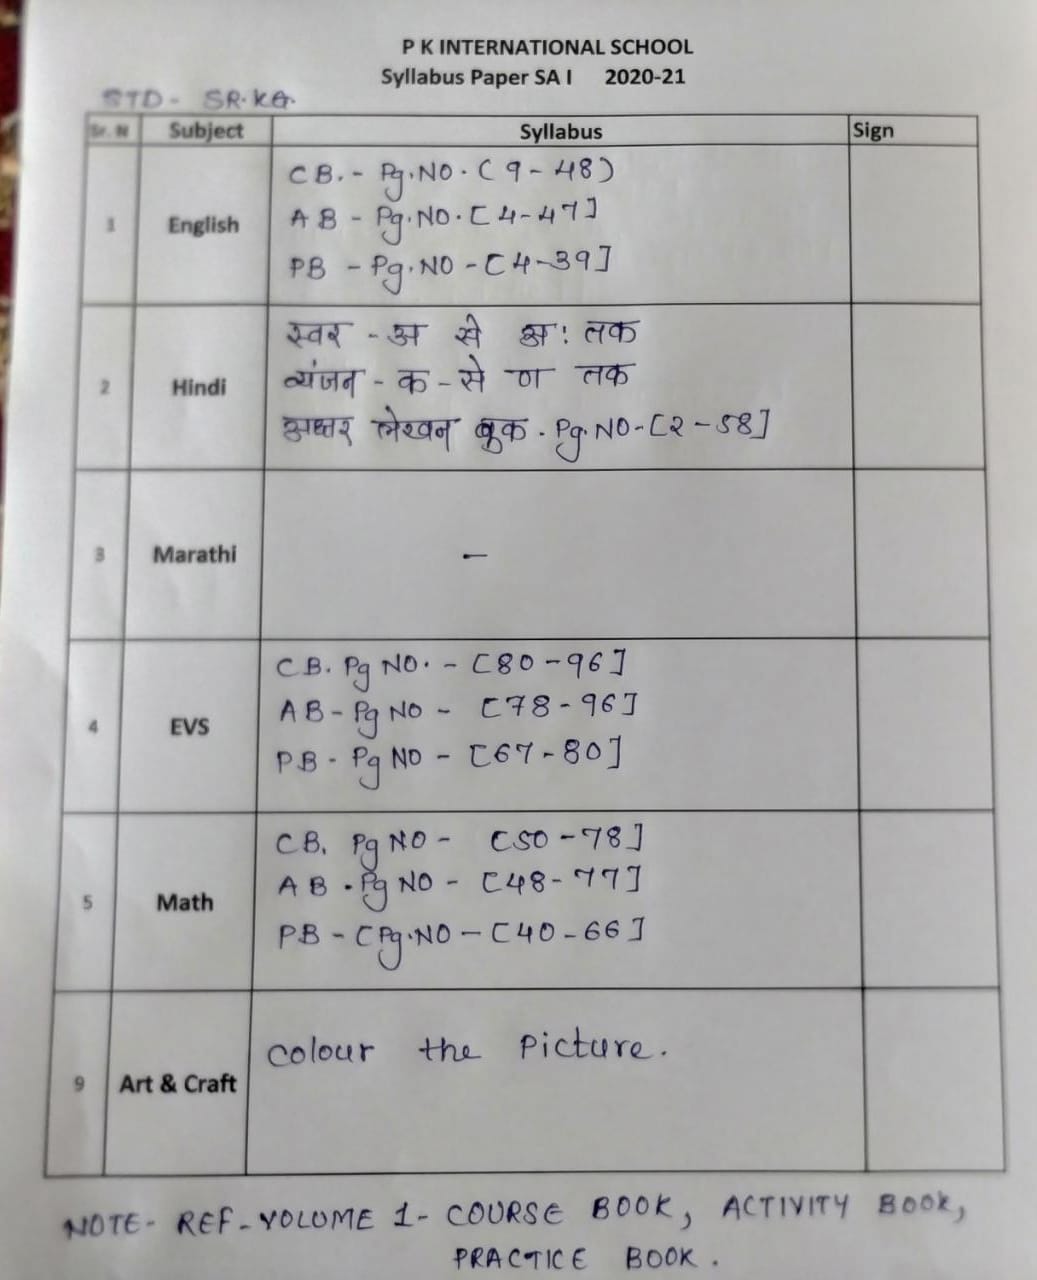 P K INTERNATIONAL SCHOOL
Syllabus Paper SA I 2020-21
STD - SR.KG.
Sr. N Subject Syllabus Sign
1 English
CB. - Pg.NO. (9-48)
AB - Pg.NO. [4-47]
PB - Pg.NO - [4-39]
2 Hindi
स्वर - अ से अः तक
व्यंजन - क - से ण तक
अक्षर लेखन बुक. Pg.NO-[2-58]
3 Marathi
-
4 EVS
CB. Pg NO. - [80-96]
AB - Pg NO - [78-96]
PB - Pg NO - [67-80]
5 Math
CB. Pg NO - [50-78]
AB. Pg NO - [48-77]
PB - [Pg.NO - [40-66]
9 Art & Craft
colour the Picture.
NOTE- REF-VOLUME 1- COURSE BOOK, ACTIVITY BOOK,
PRACTICE BOOK.